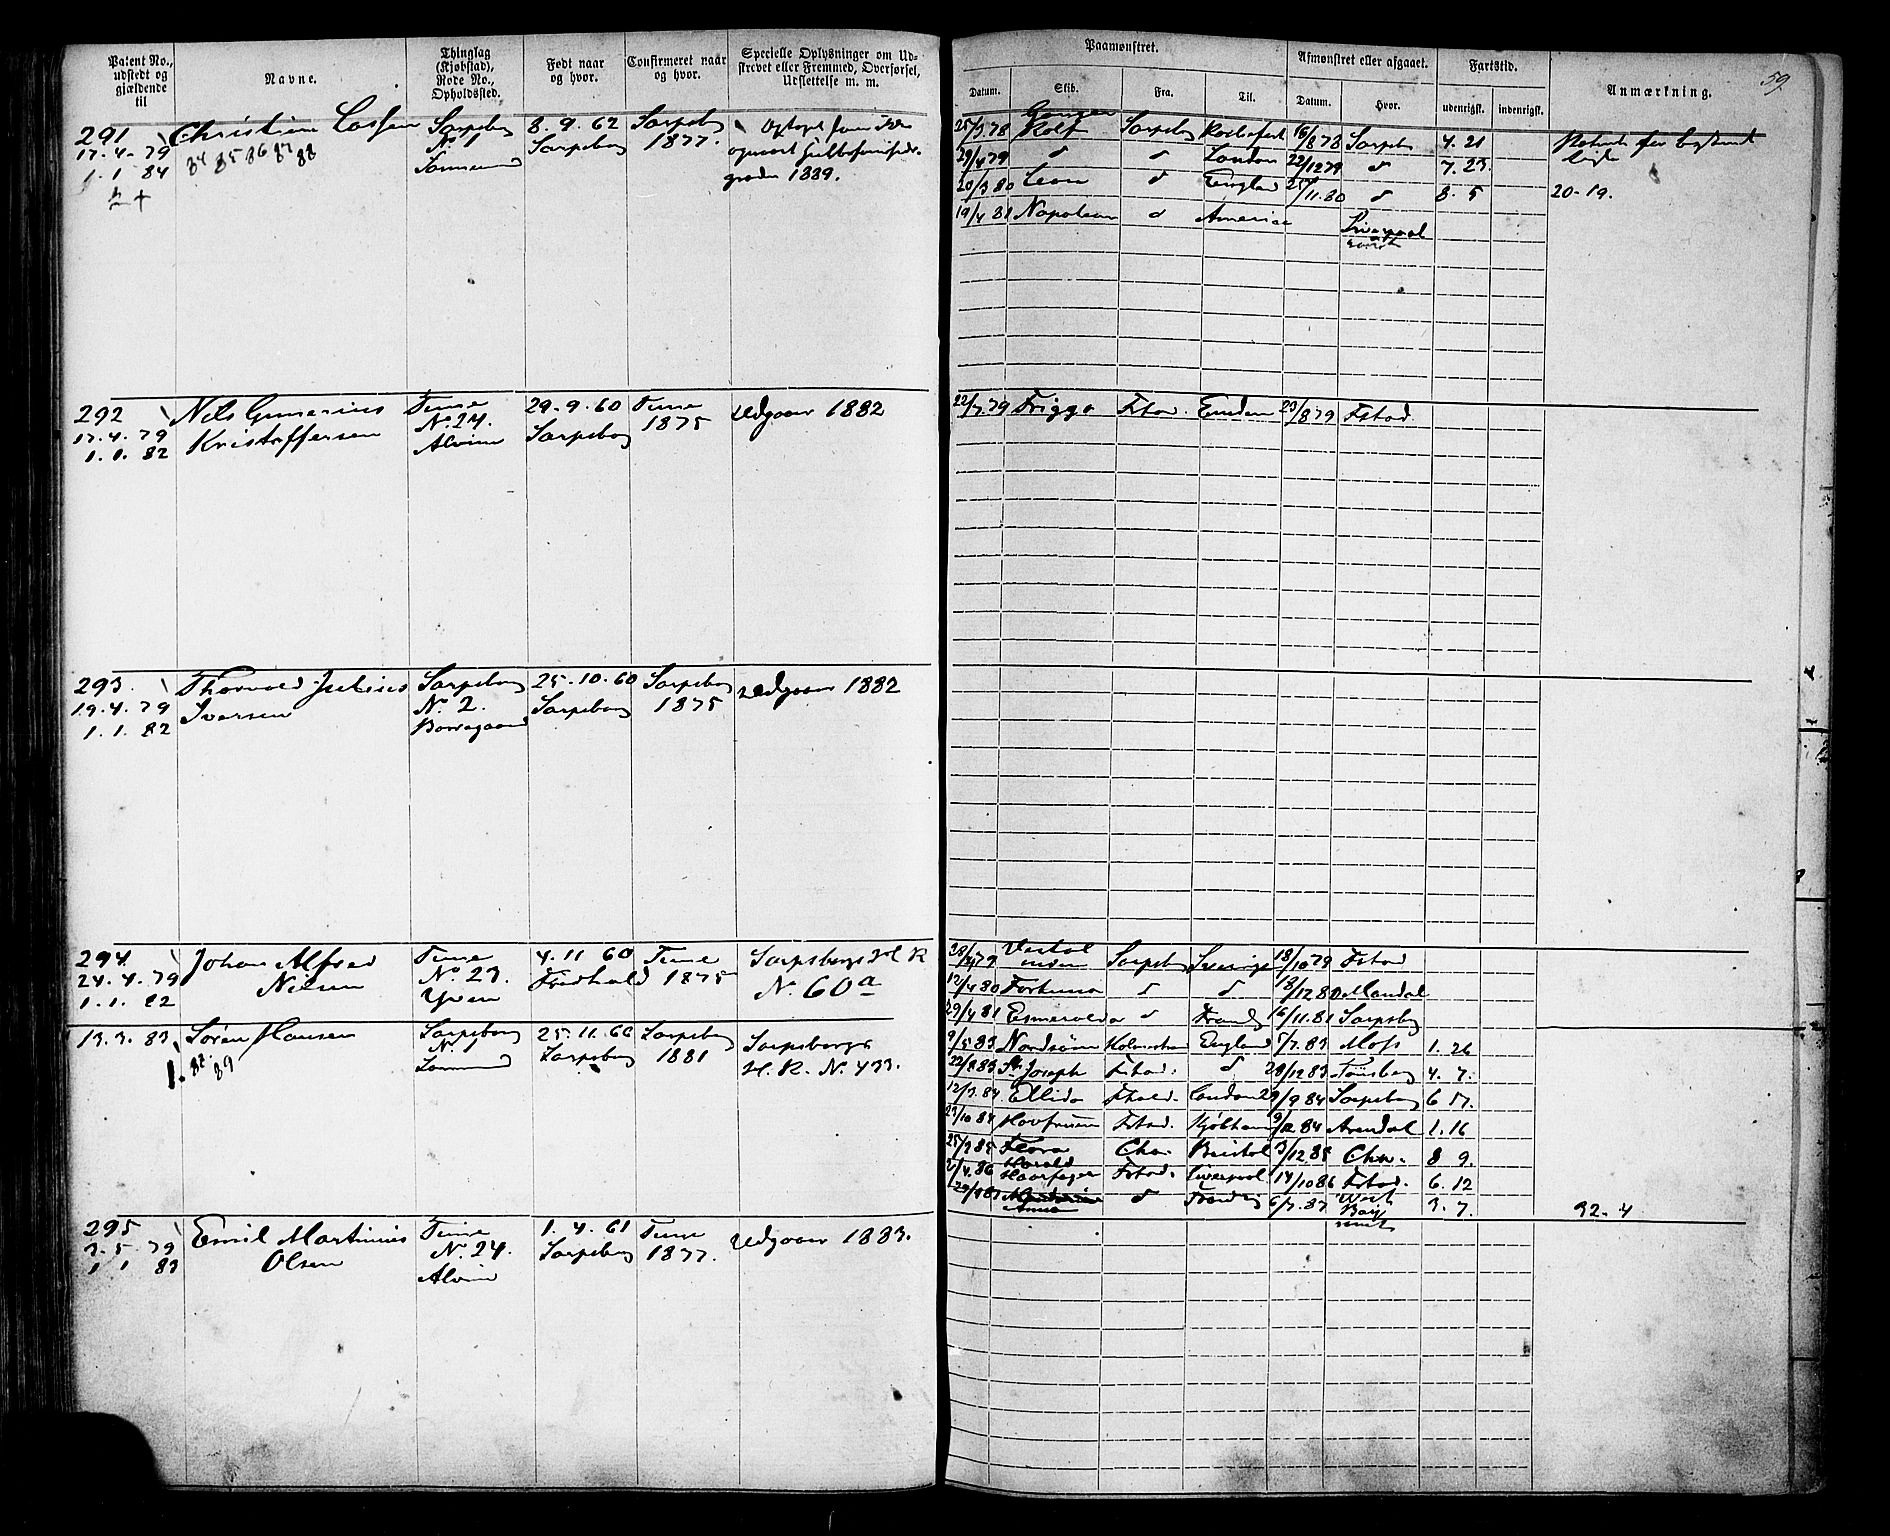 59
Patent No., udstedt og gjældende til
Navne.
Thinglag (Kjøbstad), Rode No., Opholdssted.
Født naar og hvor.
Confirmeret naar og hvor.
Specielle Oplysninger om Udstrevet eller Fremmed, Overførsel, Udslettelse m. m.
Paamønstret.
Datum.
Skib.
Fra.
Til.
Afmønstret eller afgaaet.
Datum.
Hvor.
Fartstid.
udenrigsk.
indenrigsk.
Anmærkning.
291
17.4.79
1.1.84
Christian
84 85 86 87 88
Sarpsborg
No 1
8.9.62
Sarpsborg
Sarpsborg
1877.
1889.
25/3.78 Rolf Sarpsbg 16/8 78 Sarpsbg 4.21
29/4 79 d d London 22/12 79 d 7.23.
20/3 80 Leon d Engld 25/11.80 d 8.5 20-19.
19/4 81 Napoleon d America
Liverpool
292
17.4.79
1.1.82
Nils Gunerius
Kristoffersen
Tune
No 24.
Alvim
29.9.60
Sarpsborg
Tune
1875
Udgaar 1882
22/7 79 Frigga Fstad. Emden 23/8 79 Fstad.
293.
19.4.79
1.1.82
Thorvald Julius
Iversen
Sarpsborg
No 2.
Borregaard
25.10.60
Sarpsborg
Sarpsborg
1875
Udgaar 1882
294
24.4.79
1.1.82
Johan Alfred
Nilsen
Tune
No 23.
4.11 60
Fredhald
Tune
1875
Sarpsborgs H R
No 60a
79 Sarpsbg Sverige 18/10 79 Fstad
12/4 80 Fortuna d d 18/12 80 Mandal
29/4 81 Esmeralda d 16/11.81 Sarpsbg
13.3.83
1. 82.
89
Søren Hansen
Sarpsborg
No 1
25.11.60
Sarpsborg
Sarpsborg
1881
Sarpsborgs
H. R. No. 433.
9/5 83 England 5/7.83 Moss 1.26
22/8 83 St Joseph Fstad. d 28/12 83 Tønsberg 4.7.
12/3.84 Ellida Fhald. London 29/9 84 Sarpsborg 6 17.
23/10 84 Havfruen Fstad. Kjøbhavn 9/12 84 Arendal 1.16
25/3 85 Flora Cha. Bristol 3/12.85 Cha. 8 9.
4.86 Harald
Haarfager Fstad. Liverpool 14/10 86 Fstad. 6.12
Anna d 6/7.87 West
Bay 3.7. 32-4
295
3.5.79
1.1 83
Emil Martinius
Olsen
Tune
No 24.
Alvim
1.4.61
Sarpsborg
Tune
1877.
Udgaar 1883.